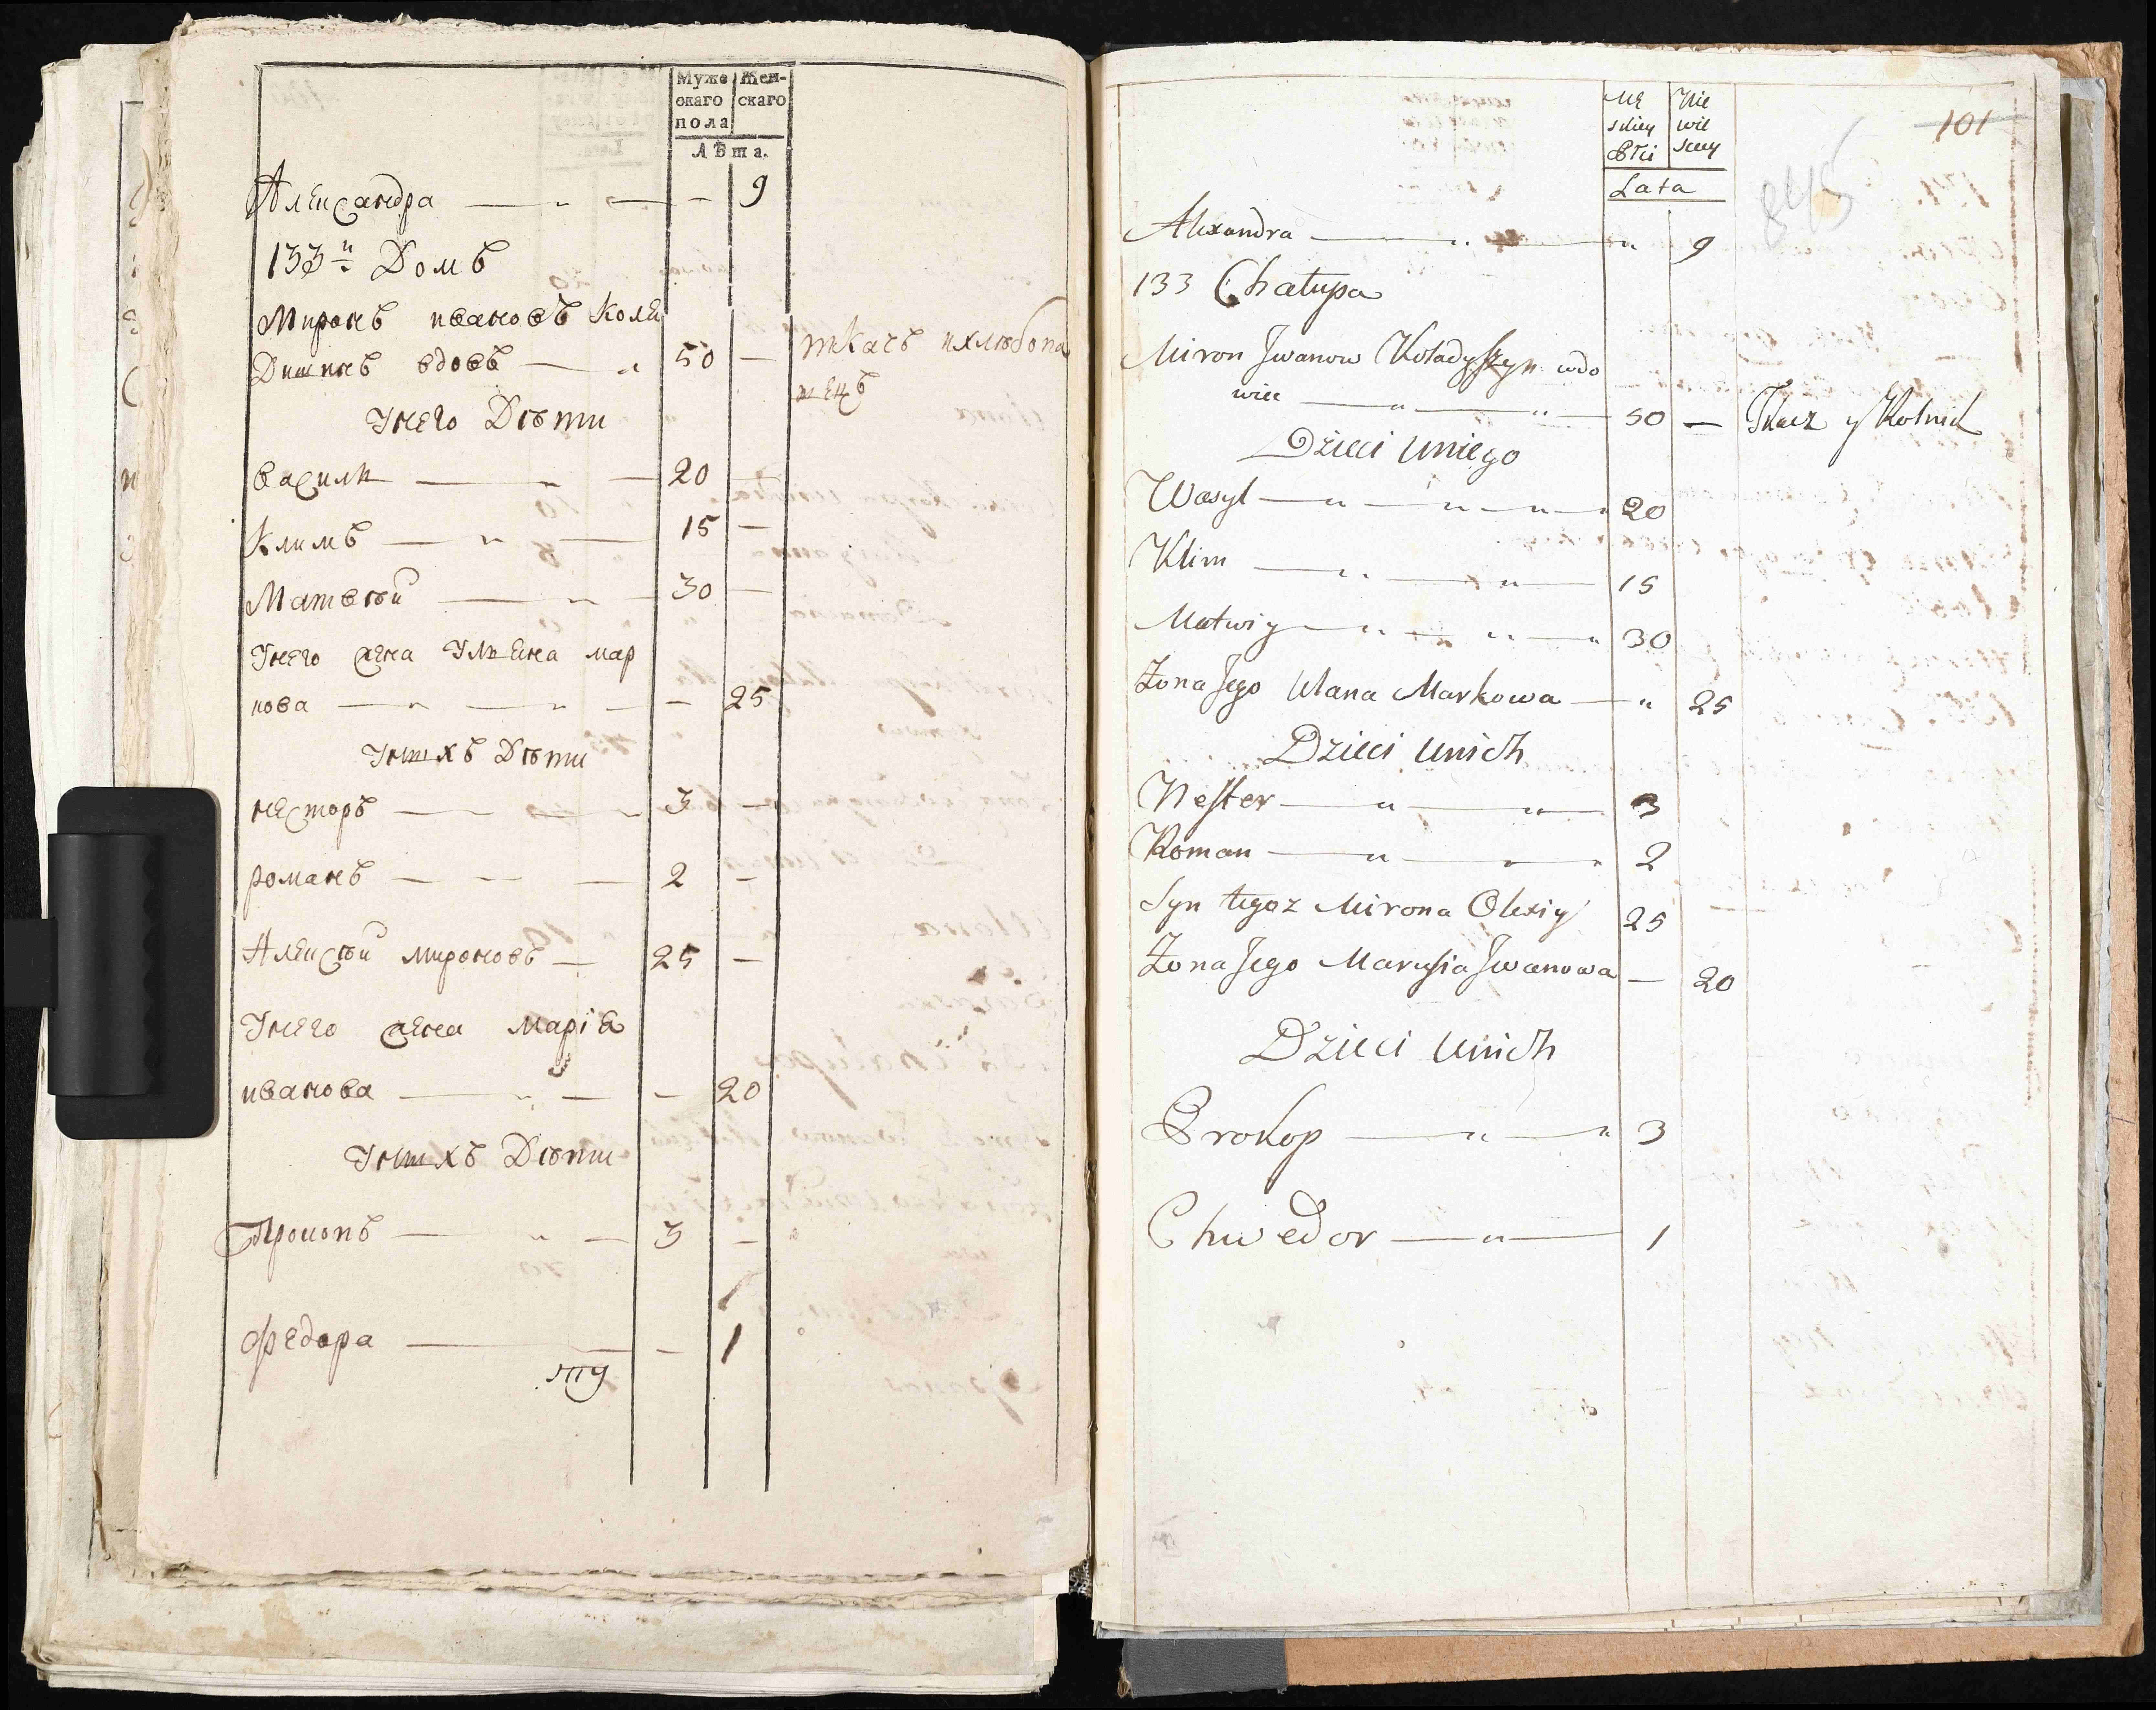 Муже
скаго
пола
Жен-
скаго
Лѣта.
Александра — „ — — 9
133й Домъ
Миронъ ивановъ Коле
Дишинъ вдовъ — „ 50 — ткачъ ихлѣбопа
шецъ
Унего Дѣти
василь — „ — 20 —
Климъ — „ — 15 —
Матвѣй — „ — 30 —
Унего жена Ульяна мар
кова — „ — „ — — 25
Унихъ Дѣти
несторъ — — „ 3 —
романъ — — — 2 —
Алексѣй мироновъ — 25 —
Унего жена Марія
иванова — „ — — 20
Унихъ Дѣти
Прокопъ — „ — 3 —
федора — — 1
101
845
Mę
skiey
Płci
Nie
wie
sciey
Lata
Alexandra — „ — „ 9
133 Chałupa
Miron Jwanow Koładyszyn wdo
wiec — „ — „ — 50 — Tkacz y Rolnik
Dzieci Uniego
Wasyl — „ — „ — „ — „ 20
Klim — „ — „ — 15
Matwiy — „ — „ — „ 30
Żona Jego Ulana Markowa — „ 25
Dzieci Unich
Nester — „ — „ — 3
Roman — „ — „ — „ 2
Syn tegoz Mirona Olexiy 25
Żona Jego Marysia Jwanowa — 20
Dzieci Unich
Prokop — „ — „ 3
Chwedor — „ — 1